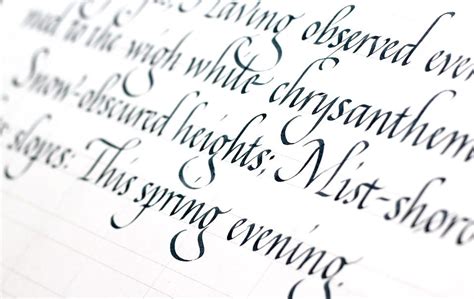 Having observed even
mad to the wigh white chrysanthem
Snow-obscured heights; Mist-shoro
slopes: This spring evening.